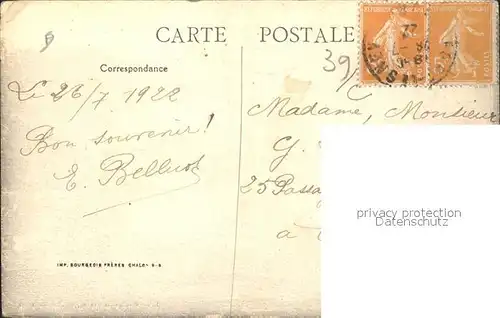 CARTE POSTALE
39
Correspondance
Le 26/7 1922
Bon souvenir!
E.
Madame, Monsieur
G.
25 Passa
a
privacy protection
Datenschutz
IMP. BOURGEOIS FRÈRES CHALON S-S